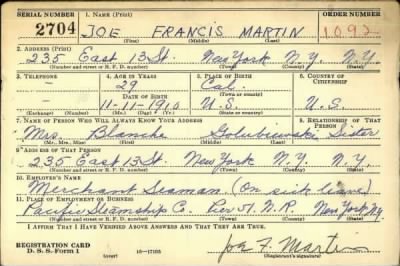 SERIAL NUMBER 1. NAME (Print) ORDER NUMBER
2704 JOE FRANCIS MARTIN 1092
(First) (Middle) (Last)
2. ADDRESS (Print)
235 East 13 St. New York N.Y. N.Y.
(Number and street or R. F. D. number) (Town) (County) (State)
3. TELEPHONE 4. AGE IN YEARS 5. PLACE OF BIRTH 6. COUNTRY OF CITIZENSHIP
29 Cal.
DATE OF BIRTH (Town or county)
11-11-1910 U.S. U.S.
(Exchange) (Number) (Mo.) (Day) (Yr.) (State or country)
7. NAME OF PERSON WHO WILL ALWAYS KNOW YOUR ADDRESS 8. RELATIONSHIP OF THAT PERSON
Mrs. Blanche Golubiewski Sister
(Mr., Mrs., Miss) (First) (Middle) (Last)
9. ADDRESS OF THAT PERSON
235 East 13 St. New York N.Y. N.Y.
(Number and street or R. F. D. number) (Town) (County) (State)
10. EMPLOYER'S NAME
Merchant Seaman (On sick leave)
11. PLACE OF EMPLOYMENT OR BUSINESS
Pacific Steamship Co. Pier 51. N.R. New York N.Y.
(Number and street or R. F. D. number) (Town) (County) (State)
I AFFIRM THAT I HAVE VERIFIED ABOVE ANSWERS AND THAT THEY ARE TRUE.
REGISTRATION CARD
D. S. S. Form 1 (over) 16-17105 Joe F. Martin
(Registrant's signature)